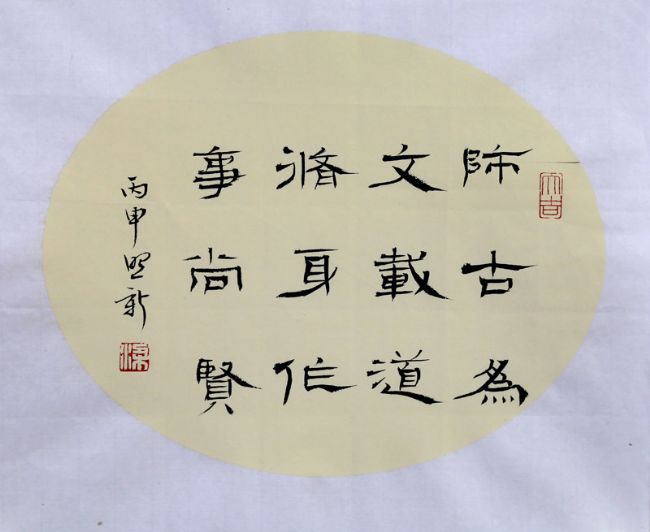 師古為
文載道
脩身作
事尚賢
丙申照新
大吉